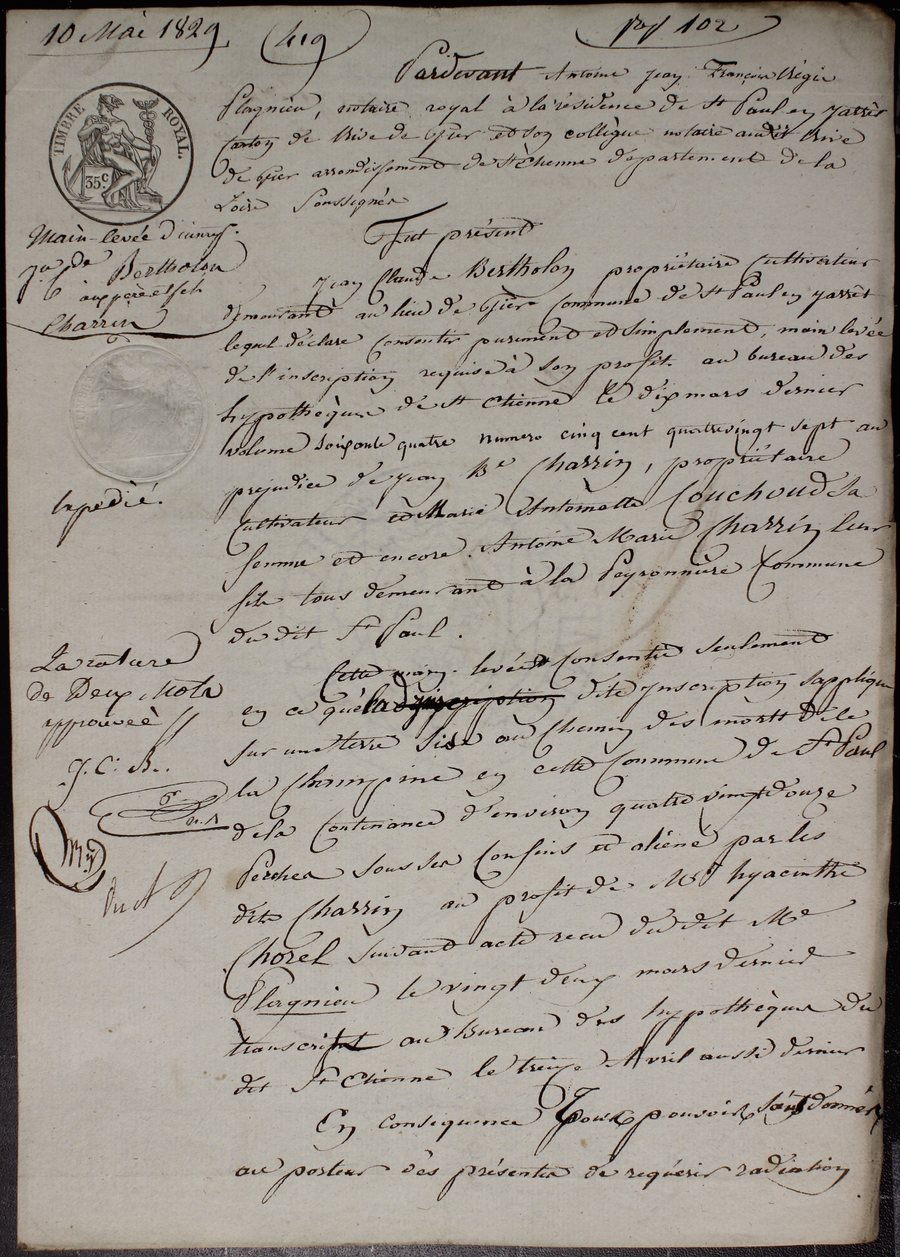 10 Mai 1829
419
Rep 102
TIMBRE ROYAL.
35 c
Pardevant Antoine Jean François Régis
Plagnieu, notaire royal à la résidence de St Paul en Jarrêt
Canton de Rive de Gier et son collègue notaire audit Rive
de Gier arrondissement de St Etienne département de la
Loire Soussignés
Fut présent
Jean Claude Bertholon propriétaire Cultivateur
demeurant au lieu de Gier Commune de St Paul en Jarrêt
lequel déclare Consentir purement et simplement, main levée
de l'inscription requise à son profit au bureau des
hypothèques de St Etienne le dix mars dernier
volume soixante quatre numero cinq cent quatrevingt sept au
préjudice de Jean Bte Charrin, propriétaire
Cultivateur et Marie Antoinette Couchoud sa
femme et encore Antoine Marie Charrin leur
fils tous demeurant à la Peyronnière Commune
du dit St Paul.
Cette main-levée est Consentie seulement
en ce que la dite Inscription s'applique
sur une terre sise au Chemin des morts de le
la Champine en cette Commune de St Paul
de la Contenance d'environ quatre vingt douze
Perches sous ses Confins et aliéné par les
dits Charrin au profit de Mr hyacinthe
Chorel suivant acte recu du dit Me
Plagnieu le vingt deux mars dernier
transcrit au Bureau des hypothèques du
dit St Etienne le treize Avril aussi dernier
En consequence Tous pouvoirs sont donnés
au porteur des présentes de requérir radiation
Main-levée d'inson
par
Bertholon
aux père et fils
Charrin
Expédié.
La rature
de Deux Mots
approuvée
J. C. B.